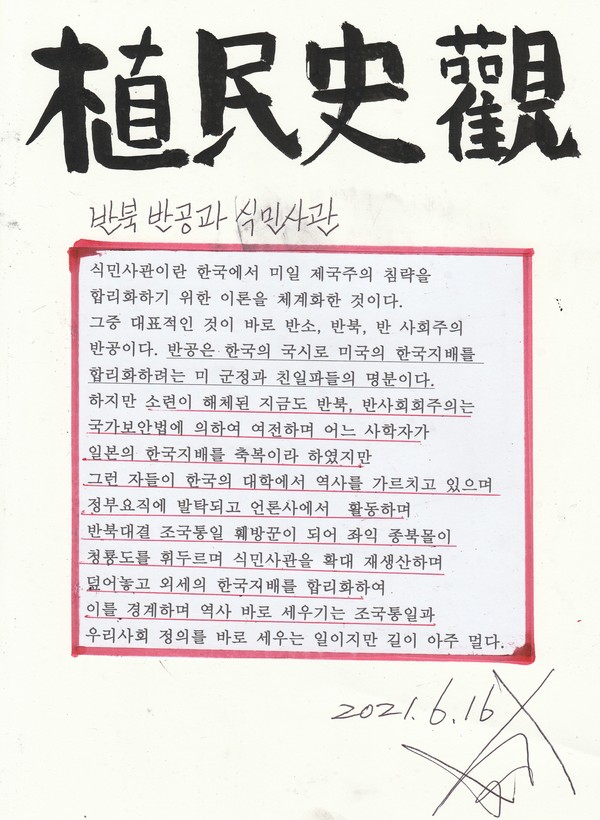 植民史觀
반북 반공과 식민사관
식민사관이란 한국에서 미일 제국주의 침략을
합리화하기 위한 이론을 체계화한 것이다.
그중 대표적인 것이 바로 반소, 반북, 반 사회주의
반공이다. 반공은 한국의 국시로 미국의 한국지배를
합리화하려는 미 군정과 친일파들의 명분이다.
하지만 소련이 해체된 지금도 반북, 반사회회주의는
국가보안법에 의하여 여전하며 어느 사학자가
일본의 한국지배를 축복이라 하였지만
그런 자들이 한국의 대학에서 역사를 가르치고 있으며
정부요직에 발탁되고 언론사에서 활동하며
반북대결 조국통일 훼방꾼이 되어 좌익 종북몰이
청룡도를 휘두르며 식민사관을 확대 재생산하며
덮어놓고 외세의 한국지배를 합리화하여
이를 경계하며 역사 바로 세우기는 조국통일과
우리사회 정의를 바로 세우는 일이지만 길이 아주 멀다.
2021.6.16